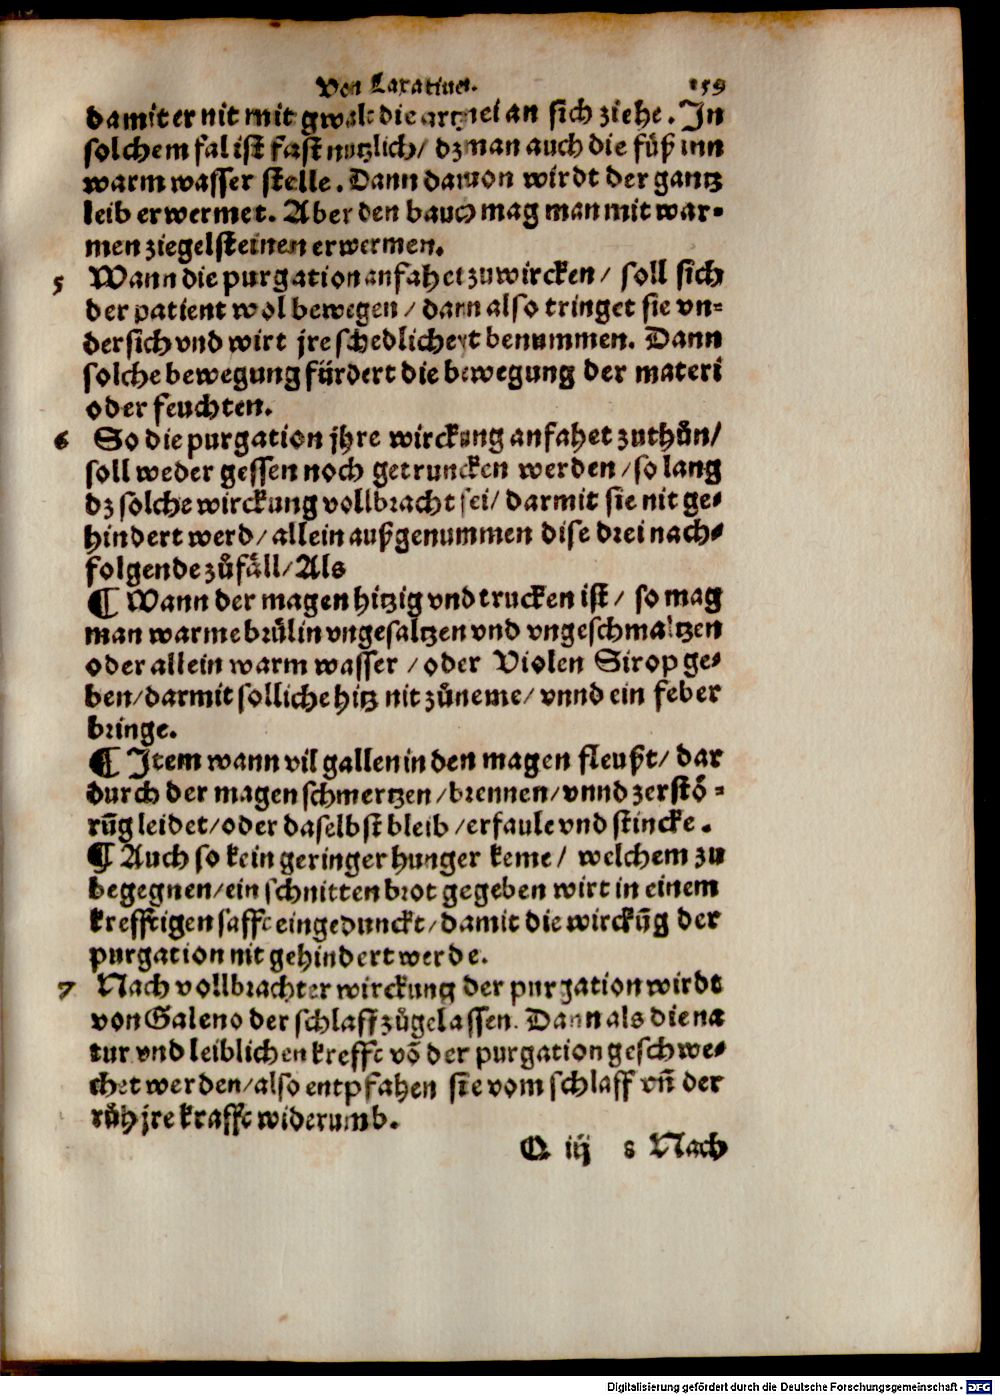 Von Laxatiuen. 159
damit er nit mit gwalt die artznei an sich ziehe. In
solchem fal ist fast nutzlich/ dz man auch die füß inn
warm wasser stelle. Dann dauon wirdt der gantz
leib erwermet. Aber den bauch mag man mit war-
men ziegelsteinen erwermen.
5 Wann die purgation anfahet zu wircken/ soll sich
der patient wol bewegen/ dann also tringet sie vn-
dersich vnd wirt jre schedlicheyt benummen. Dann
solche bewegung fürdert die bewegung der materi
oder feuchten.
6 So die purgation jhre wirckung anfahet zuthůn/
soll weder gessen noch getruncken werden/ so lang
dz solche wirckung vollbracht sei/ darmit sie nit ge-
hindert werd/ allein außgenummen dise drei nach-
folgende zůfäll/ Als
¶ Wann der magen hitzig vnd trucken ist/ so mag
man warme brůlin vngesaltzen vnd vngeschmaltzen
oder allein warm wasser/ oder Violen Sirop ge-
ben/ darmit solliche hitz nit zůneme/ vnnd ein feber
bringe.
¶ Item wann vil gallen in den magen fleußt/ dar
durch der magen schmertzen/ brennen/ vnnd zerstö-
rũg leidet/ oder daselbst bleib/ erfaule vnd stincke.
¶ Auch so kein geringer hunger keme/ welchem zu
begegnen/ ein schnitten brot gegeben wirt in einem
krefftigen safft eingedunckt/ damit die wirckũg der
purgation nit gehindert werde.
7 Nach vollbrachter wirckung der purgation wirdt
von Galeno der schlaff zůgelassen. Dann als die na
tur vnd leiblichen krefft võ der purgation geschwe-
chet werden/ also entpfahen sie vom schlaff vñ der
růh jre krafft widerumb.
Q iij 8 Nach
Digitalisierung gefördert durch die Deutsche Forschungsgemeinschaft - DFG